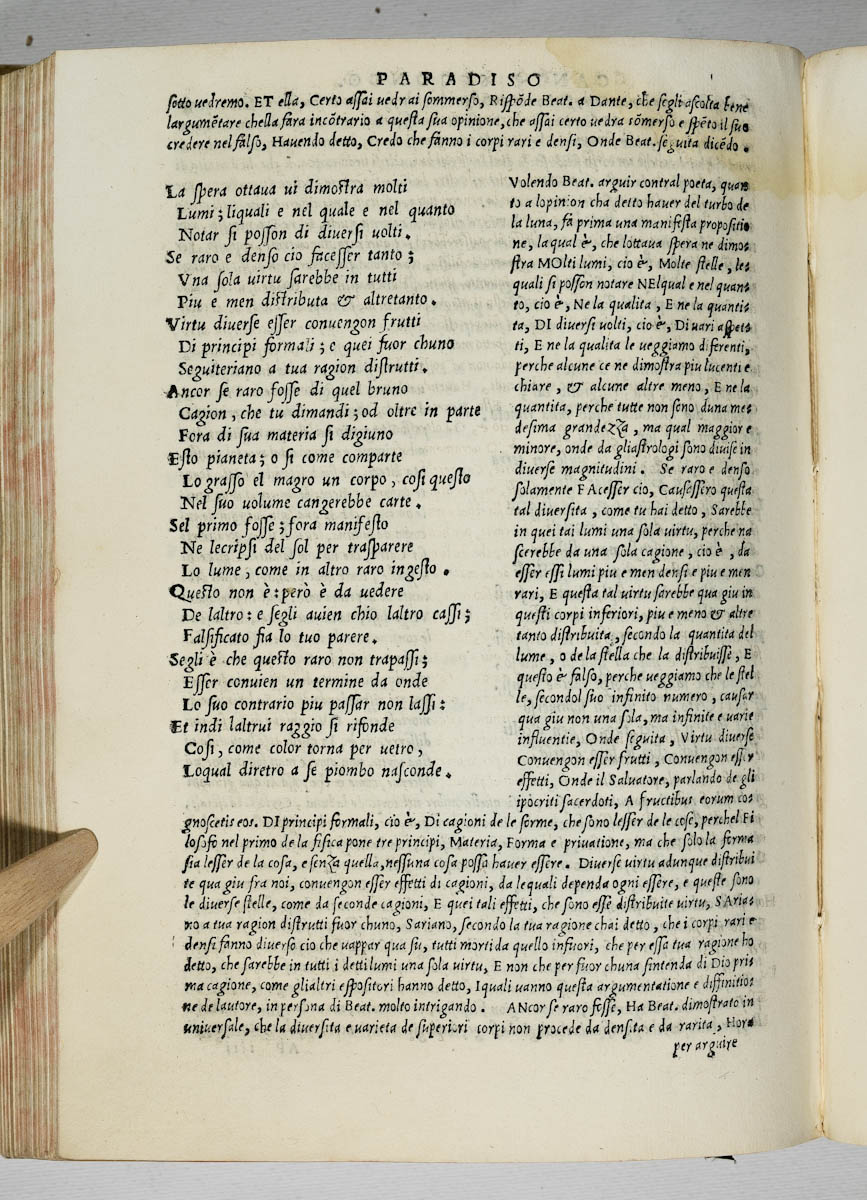 PARADISO
sotto uedremo. ET ella, Certo assai uedrai sommerso, Rispōde Beat. a Dante, che segli ascolta bene
largumētare chella fara incōtrario a questa sua opinione, che assai certo uedra sōmerso e spēto il suo
credere nel falso, Hauendo detto, Credo che fanno i corpi rari e densi, Onde Beat. seguita dicēdo.
La spera ottaua ui dimostra molti
Lumi; liquali e nel quale e nel quanto
Notar si posson di diuersi uolti.
Se raro e denso cio facesser tanto;
Vna sola uirtu sarebbe in tutti
Piu e men distributa & altretanto.
Virtu diuerse esser conuengon frutti
Di principi formali; e quei fuor chuno
Seguiteriano a tua ragion distrutti.
Ancor se raro fosse di quel bruno
Cagion, che tu dimandi; od oltre in parte
Fora di sua materia si digiuno
Esto pianeta; o si come comparte
Lo grasso el magro un corpo, cosi questo
Nel suo uolume cangerebbe carte.
Sel primo fosse; fora manifesto
Ne lecripsi del sol per trasparere
Lo lume, come in altro raro ingesto.
Questo non è: però è da uedere
De laltro: e segli auien chio laltro cassi;
Falsificato fia lo tuo parere.
Segli è che questo raro non trapassi;
Esser conuien un termine da onde
Lo suo contrario piu passar non lassi:
Et indi laltrui raggio si rifonde
Cosi, come color torna per uetro,
Loqual diretro a se piombo nasconde.
Volendo Beat. arguir contral poeta, quan
to a lopinion cha detto hauer del turbo de
la luna, fa prima una manifesta propositio
ne, la qual è, che lottaua spera ne dimos
stra MOlti lumi, cio è, Molte stelle, les
quali si posson notare NElqual e nel quans
to, cio è, Ne la qualita, E ne la quantis
ta, DI diuersi uolti, cio è, Di uari aspets
ti, E ne la qualita le ueggiamo diferenti,
perche alcune ce ne dimostra piu lucenti e
chiare, & alcune altre meno, E ne la
quantita, perche tutte non sono duna mes
desima grandezza, ma qual maggior e
minore, onde da gliastrologi sono diuise in
diuerse magnitudini. Se raro e denso
solamente FAcesser cio, Causessero questa
tal diuersita, come tu hai detto, Sarebbe
in quei tai lumi una sola uirtu, perche na
scerebbe da una sola cagione, cio è, da
esser essi lumi piu e men densi e piu e men
rari, E questa tal uirtu sarebbe qua giu in
questi corpi inferiori, piu e meno & altre
tanto distribuita, secondo la quantita del
lume, o de la stella che la distribuisse, E
questo è falso, perche ueggiamo che le stel
le, secondol suo infinito numero, causar
qua giu non una sola, ma infinite e uarie
influentie, Onde seguita, Virtu diuerse
Conuengon esser frutti, Conuengon esser
effetti, Onde il Saluatore, parlando de gli
ipocriti sacerdoti, A fructibus eorum cos
gnoscetis eos. DI principi formali, cio è, Di cagioni de le forme, che sono lesser de le cose, perchel Fi
losofo nel primo de la fisica pone tre principi, Materia, Forma e priuatione, ma che solo la forma
sia lesser de la cosa, e senza quella, nessuna cosa possa hauer essere. Diuerse uirtu adunque distribui
te qua giu fra noi, conuengon esser effetti di cagioni, da lequali dependa ogni essere, e queste sono
le diuerse stelle, come da seconde cagioni, E quei tali effetti, che sono esse distribuite uirtu, SAria=
no a tua ragion distrutti fuor chuno, Sariano, secondo la tua ragione chai detto, che i corpi rari e
densi fanno diuerso cio che uappar qua su, tutti morti da quello infuori, che per essa tua ragione ho
detto, che sarebbe in tutti i detti lumi una sola uirtu, E non che per fuor chuna sintenda di Dio pris
ma cagione, come glialtri espositori hanno detto, Iquali uanno questa argumentatione e diffinitios
ne de lautore, in persona di Beat. molto intrigando. ANcor se raro fosse, Ha Beat. dimostrato in
uniuersale, che la diuersita e uarieta de superiori corpi non procede da densita e da rarita, Hora
per arguire